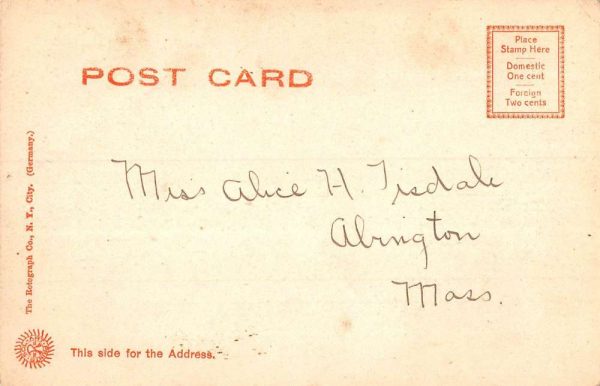 POST CARD
Place
Stamp Here
Domestic
One cent
Foreign
Two cents
Miss Alice H. Tisdale
Abington
Mass.
The Rotograph Co., N. Y., City. (Germany.)
This side for the Address.